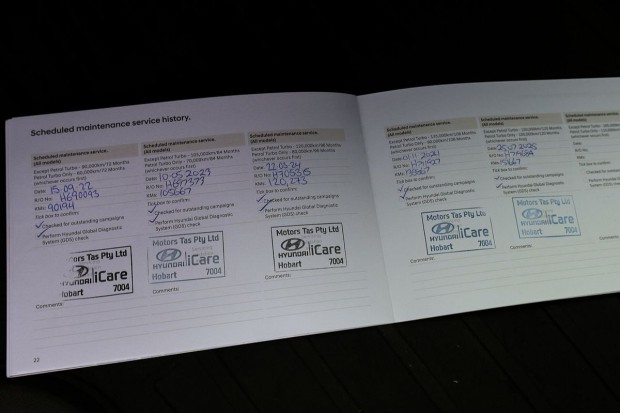 Scheduled maintenance service history.
Scheduled maintenance service.
(All models)
Except Petrol Turbo - 90,000km/72 Months
Petrol Turbo Only - 60,000km/72 Months
(whichever occurs first)
Date: 15.09.22
R/O No:
KMs: 90194
Tick box to confirm:
Checked for outstanding campaigns
Perform Hyundai Global Diagnostic
System (GDS) check
Motors Tas Pty Ltd
HYUNDAI iCare
Hobart 7004
Comments:
22
Scheduled maintenance service.
(All models)
Except Petrol Turbo - 105,000km/84 Months
Petrol Turbo Only - 70,000km/84 Months
(whichever occurs first)
Date: 10.05.2023
R/O No: H697373
KMs: 105667
Tick box to confirm:
Checked for outstanding campaigns
Perform Hyundai Global Diagnostic
System (GDS) check
Motors Tas Pty Ltd
HYUNDAI iCare
Hobart 7004
Comments:
Scheduled maintenance service.
(All models)
Except Petrol Turbo - 120,000km/96 Months
Petrol Turbo Only - 80,000km/96 Months
(whichever occurs first)
Date: 22.03.24
R/O No:
KMs: 120,295
Tick box to confirm:
Checked for outstanding campaigns
Perform Hyundai Global Diagnostic
System (GDS) check
Motors Tas Pty Ltd
HYUNDAI iCare
Hobart 7004
Comments:
Scheduled maintenance service.
(All models)
Except Petrol Turbo - 135,000km/108 Months
(whichever occurs first)
Date: 01.11.2024
R/O No:
KMs:
Tick box to confirm:
Checked for outstanding campaigns
Perform Hyundai Global Diagnostic
System (GDS) check
Motors Tas Pty Ltd
HYUNDAI iCare
Hobart 7004
Comments:
Scheduled maintenance service.
(All models)
(whichever occurs first)
Date:
R/O No:
KMs:
Tick box to confirm:
Checked for outstanding campaigns
Perform Hyundai Global Diagnostic
System (GDS) check
Motors Tas Pty Ltd
HYUNDAI iCare
Hobart 7004
Comments: